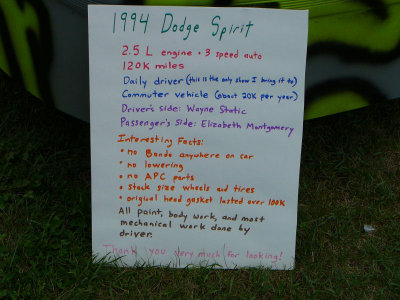 1994 Dodge Spirit
2.5 L engine • 3 speed auto
120K miles
Daily driver (this is the only show I bring it to)
Commuter vehicle (about 20K per year)
Driver's side: Wayne Static
Passenger's side: Elizabeth Montgomery
Interesting Facts:
• no Bondo anywhere on car
• no lowering
• no APC parts
• stock size wheels and tires
• original head gasket lasted over 100K
All paint, body work, and most
mechanical work done by
driver.
Thank you very much for looking!